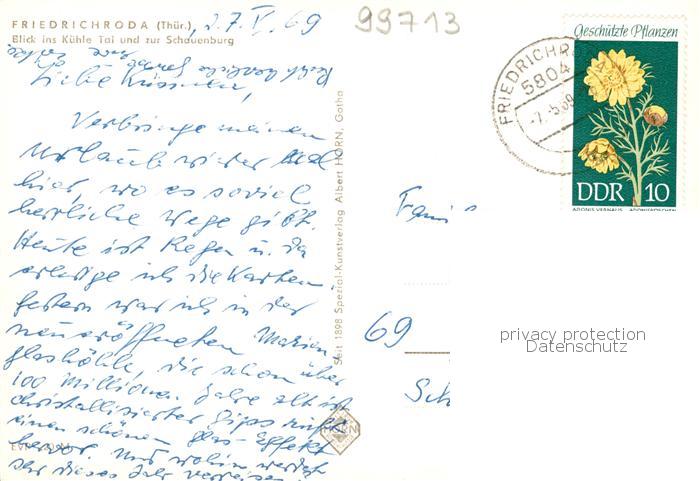 FRIEDRICHRODA (Thür.), d. 7. V. 69
Blick ins Kühle Tal und zur Schauenburg
99713
Geschützte Pflanzen
FRIEDRICHR
5804
-7.-5.69
DDR 10
ADONIS VERNALIS ADONISRÖSCHEN
Liebe
Verbringe meinen
Urlaub wieder mal
hier, wo es soviel
herrliche Wege gibt.
Heute ist Regen u. da
erledige ich die Karten.
Gestern war ich in der
neueröffneten Marien-
glashöhle, die schon über
100 Millionen Jahre alt ist
christallisierter Gips ruft
einen schönen Glas-Effekt
hervor. Und wohin werdet
Ihr dieses Jahr verreisen?
Seit 1898 Spezial-Kunstverlag Albert HORN, Gotha
HORN
Fami
69
Sch
privacy protection
Datenschutz